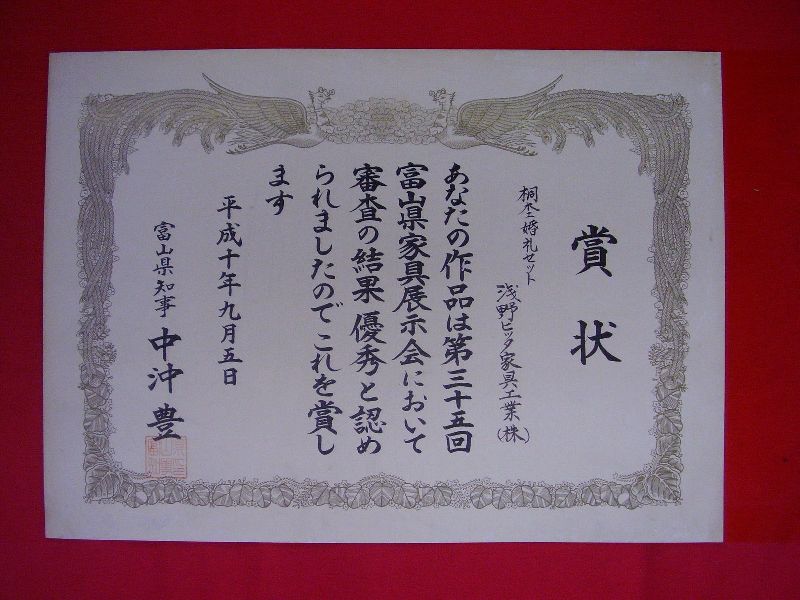 賞状
桐杢婚礼セット
浅野ヒッタ家具工業(株)
あなたの作品は第三十五回
富山県家具展示会において
審査の結果 優秀と認め
られましたのでこれを賞し
ます
平成十年九月五日
富山県知事 中沖豊